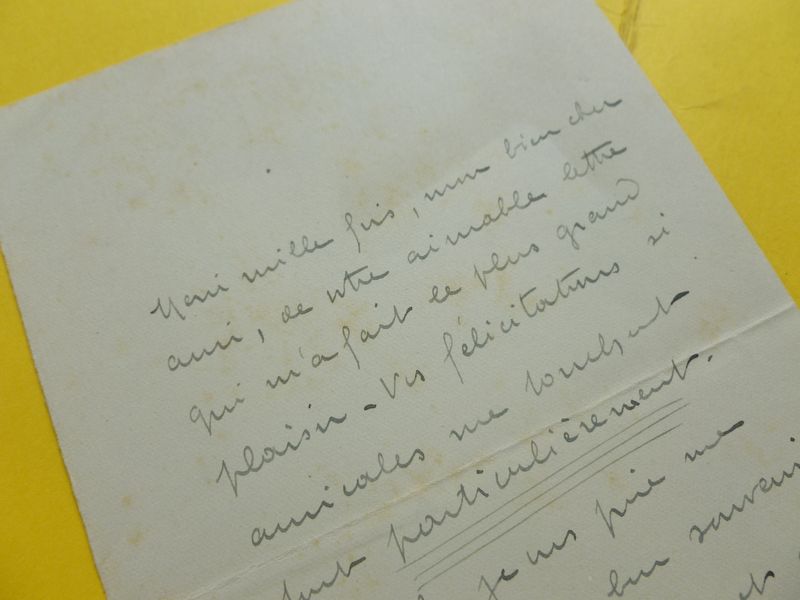 Merci mille fois, mon bien cher
ami, de votre aimable lettre
qui m'a fait le plus grand
plaisir - Vos félicitations si
amicales me touchent
tout particulièrement.
je vous prie me
bon souvenir
et